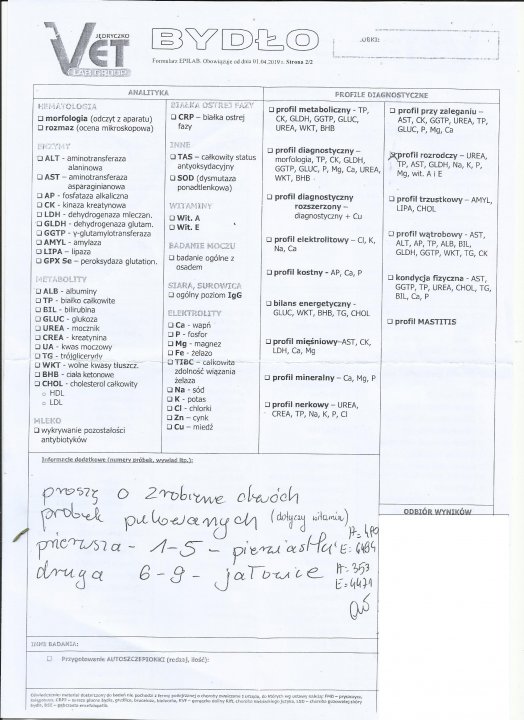 JĘDRYCZKO
VET
LAB GROUP
BYDŁO
Formularz EPILAB. Obowiązuje od dnia 01.04.2019 r. Strona 2/2
ANALITYKA
HEMATOLOGIA
❑ morfologia (odczyt z aparatu)
❑ rozmaz (ocena mikroskopowa)
ENZYMY
❑ ALT - aminotransferaza
alaninowa
❑ AST – aminotransferaza
asparaginianowa
❑ AP - fosfataza alkaliczna
❑ CK - kinaza kreatynowa
❑ LDH - dehydrogenaza mleczan.
❑ GLDH - dehydrogenaza glutam.
❑ GGTP - γ-glutamylotransferaza
❑ AMYL - amylaza
❑ LIPA – lipaza
❑ GPX Se – peroksydaza glutation.
METABOLITY
❑ ALB - albuminy
❑ TP - białko całkowite
❑ BIL - bilirubina
❑ GLUC - glukoza
❑ UREA - mocznik
❑ CREA - kreatynina
❑ UA - kwas moczowy
❑ TG - trójglicerydy
❑ WKT - wolne kwasy tłuszcz.
❑ BHB - ciała ketonowe
❑ CHOL - cholesterol całkowity
○ HDL
○ LDL
MLEKO
❑ wykrywanie pozostałości
antybiotyków
BIAŁKA OSTREJ FAZY
❑ CRP – białka ostrej
fazy
INNE
❑ TAS – całkowity status
antyoksydacyjny
❑ SOD (dysmutaza
ponadtlenkowa)
WITAMINY
❑ Wit. A
❑ Wit. E
BADANIE MOCZU
❑ badanie ogólne z
osadem
SIARA, SUROWICA
❑ ogólny poziom IgG
ELEKTROLITY
❑ Ca - wapń
❑ P - fosfor
❑ Mg - magnez
❑ Fe - żelazo
❑ TIBC – całkowita
zdolność wiązania
żelaza
❑ Na - sód
❑ K - potas
❑ Cl - chlorki
❑ Zn – cynk
❑ Cu – miedź
PROFILE DIAGNOSTYCZNE
❑ profil metaboliczny - TP,
CK, GLDH, GGTP, GLUC,
UREA, WKT, BHB
❑ profil diagnostyczny -
morfologia, TP, CK, GLDH,
GGTP, GLUC, P, Mg, Ca, UREA,
WKT, BHB
❑ profil diagnostyczny
rozszerzony -
diagnostyczny + Cu
❑ profil elektrolitowy - Cl, K,
Na, Ca
❑ profil kostny - AP, Ca, P
❑ bilans energetyczny -
GLUC, WKT, BHB, TG, CHOL
❑ profil mięśniowy–AST, CK,
LDH, Ca, Mg
❑ profil mineralny – Ca, Mg, P
❑ profil nerkowy – UREA,
CREA, TP, Na, K, P, Cl
❑ profil przy zaleganiu –
AST, CK, GGTP, UREA, TP,
GLUC, P, Mg, Ca
profil rozrodczy – UREA,
TP, AST, GLDH, Na, K, P,
Mg, wit. A i E
❑ profil trzustkowy – AMYL,
LIPA, CHOL
❑ profil wątrobowy - AST,
ALT, AP, TP, ALB, BIL,
GLDH, GGTP, WKT, TG, CK
❑ kondycja fizyczna - AST,
GGTP, TP, UREA, CHOL, TG,
BIL, Ca, P
❑ profil MASTITIS
Informacje dodatkowe (numery próbek, wywiad itp.):
proszę o zrobienie dwóch
próbek pulowanych (dotyczy witamin)
pierwsza - 1-5 - pierwiastki
druga 6-9 - jałowice
A=353
E=4471
ODBIÓR WYNIKÓW
INNE BADANIA:
❑ Przygotowanie AUTOSZCZEPIONKI (rodzaj, ilość):